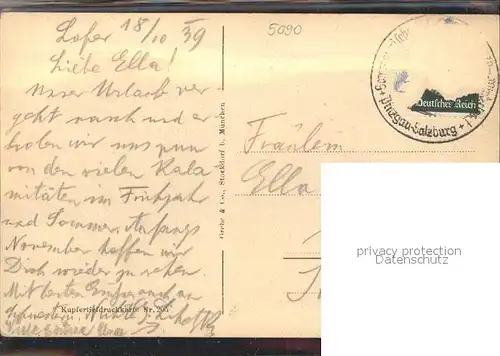 Lofer 18/10 39
5090
Liebe Ella!
Unser Urlaub ver
geht rasch und er
holen wir uns nun
von den vielen Kala
mitäten im Frühjahr
und Sommer. Anfangs
November hoffen wir
Dich wieder zu sehen.
Mit besten Grüßen auch an
Kupfertiefdruckkarte Nr.
Grebe & Co., Stockdorf b. München
Deutsches Reich
Pinzgau-Salzburg
Fräulein
Ella
privacy protection
Datenschutz